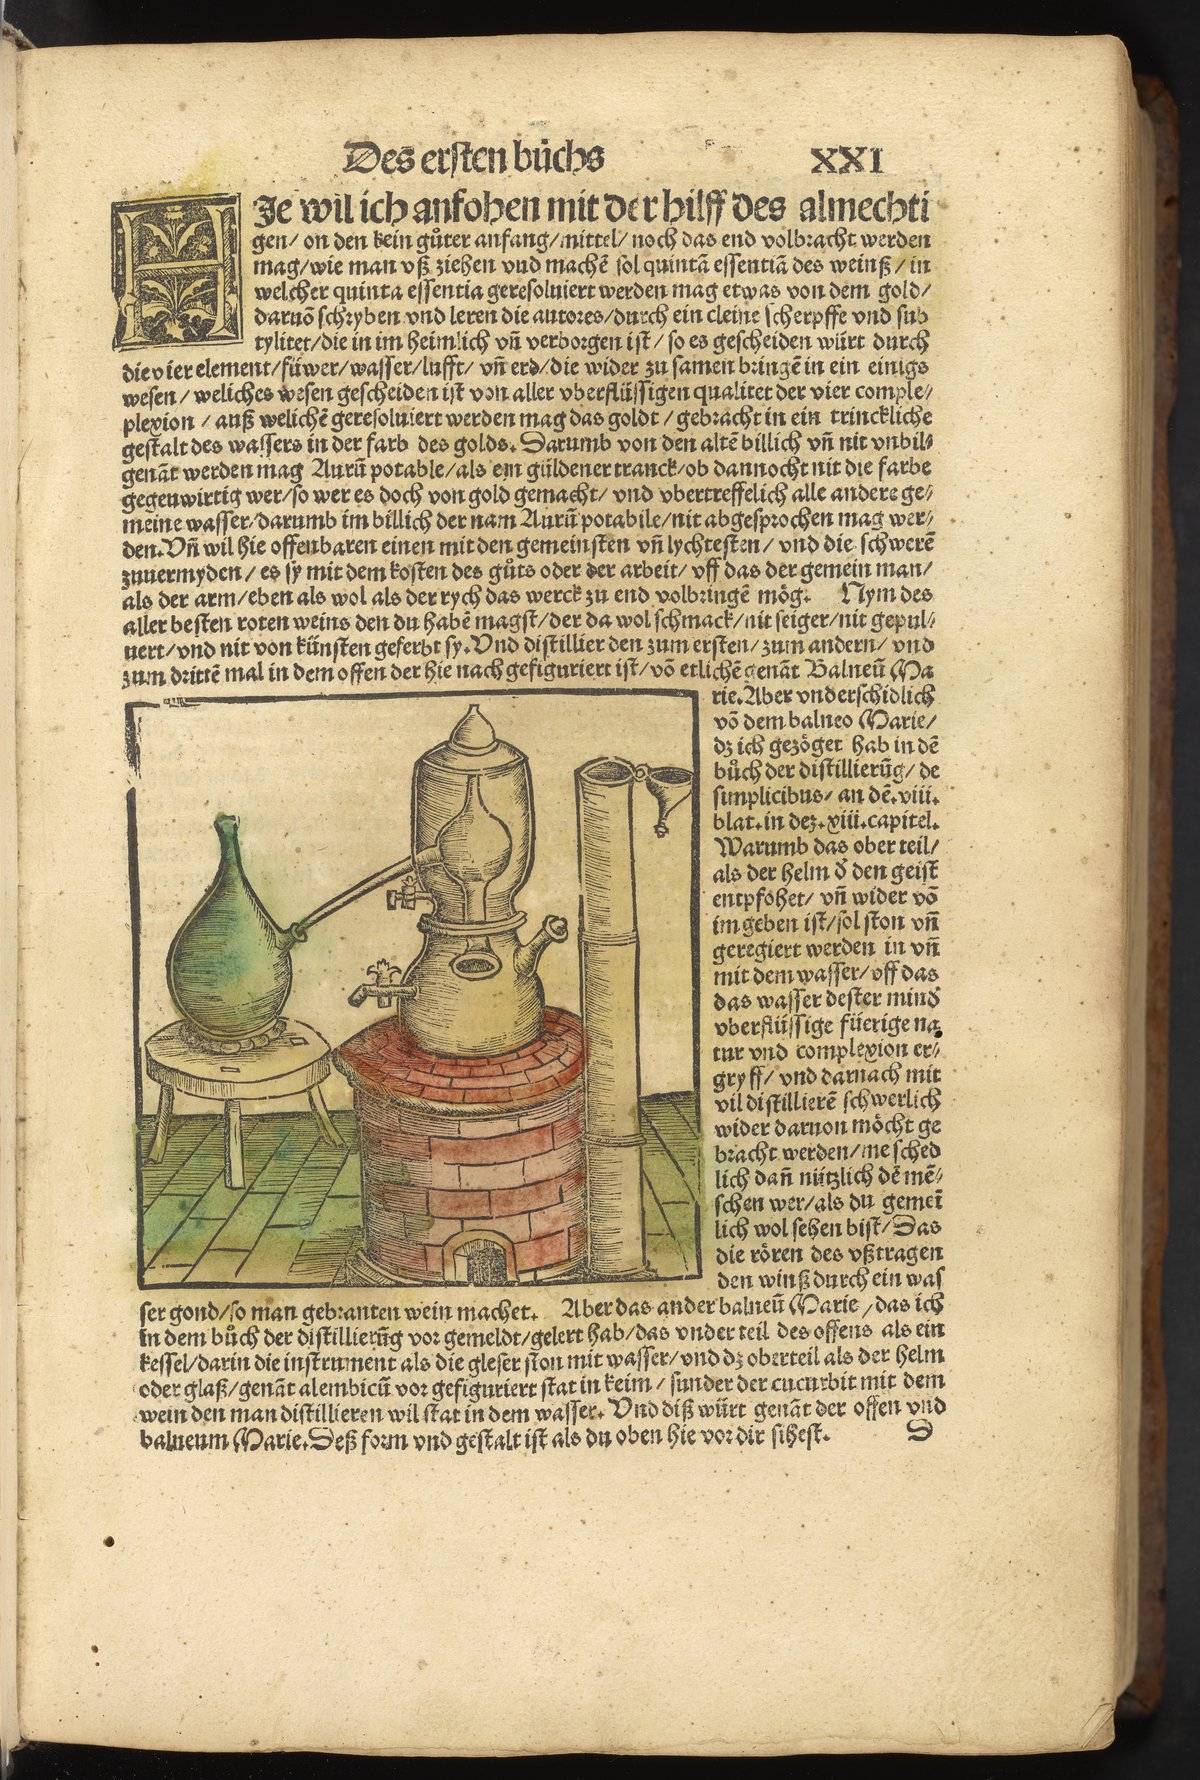 Des ersten bůchs XXI
HIe wil ich anfohen mit der hilff des almechti
gen/ on den kein gůter anfang/mittel/ noch das end volbracht werden
mag/wie man vß ziehen vnd machẽ sol quintã essentiã des weinß/ in
welcher quinta essentia geresoluiert werden mag etwas von dem gold/
daruõ schryben vnd leren die autores/durch ein cleine scherpffe vnd sub
tylitet/die in im heimlich vñ verborgen ist/ so es gescheiden würt durch
die vier element/füwer/wasser/lufft/ vñ erd/die wider zu samen bringẽ in ein einigs
wesen/ weliches wesen gescheiden ist von aller vberflüssigen qualitet der vier comple/
plexion/ auß welichẽ geresoluiert werden mag das goldt/ gebracht in ein trinckliche
gestalt des wassers in der farb des golds. Darumb von den altẽ billich vñ nit vnbil-
genãt werden mag Aurũ potable/als ein güldener tranck/ob dannocht nit die farbe
gegenwirtig wer/so wer es doch von gold gemacht/ vnd vbertreffelich alle andere ge/
meine wasser/darumb im billich der nam Aurũ potabile/nit abgesprochen mag wer/
den. Vñ wil hie offenbaren einen mit den gemeinsten vñ lychtesten/ vnd die schwerẽ
zuuermyden/ es sy mit dem kosten des gůts oder der arbeit/ vff das der gemein man/
als der arm/eben als wol als der rych das werck zu end volbringẽ mög. Nym des
aller besten roten weins den du habẽ magst/der da wol schmack/nit seiger/nit gepul-
uert/vnd nit von künsten geferbt sy. Vnd distillier den zum ersten/zum andern/ vnd
zum drittẽ mal in dem offen der hie nach gefiguriert ist/ võ etlichẽ genãt Balneũ Ma
rie. Aber vnderschidlich
võ dem balneo Marie/
dz ich gezöget hab in dẽ
bůch der distillierũg/ de
simplicibus/ an dẽ. viii.
blat. in dez. xiii. capitel.
Warumb das ober teil/
als der helm ď den geist
entpfohet/ vñ wider võ
im geben ist/sol ston vñ
geregiert werden in vñ
mit dem wasser/vff das
das wasser dester minď
vberflüssige füerige na
tur vnd complexion er/
gryff/ vnd darnach mit
vil distillierẽ schwerlich
wider daruon möcht ge
bracht werden/me sched
lich dañ nützlich dẽ mẽ/
schen wer/als du gemeĩ
lich wol sehen bist/Das
die rören des vßtragen
den winß durch ein was
ser gond/so man gebranten wein machet. Aber das ander balneũ Marie/das ich
in dem bůch der distillierũg vor gemeldt/gelert hab/das vnder teil des offens als ein
kessel/darin die instrument als die gleser ston mit wasser/vnd dz oberteil als der helm
oder glaß/genãt alembicũ vor gefiguriert stat in keim/ sunder der cucurbit mit dem
wein den man distillieren wil stat in dem wasser. Vnd diß würt genãt der offen vnd
balneum Marie. Deß form vnd gestalt ist als du oben hie vor dir sihest. D